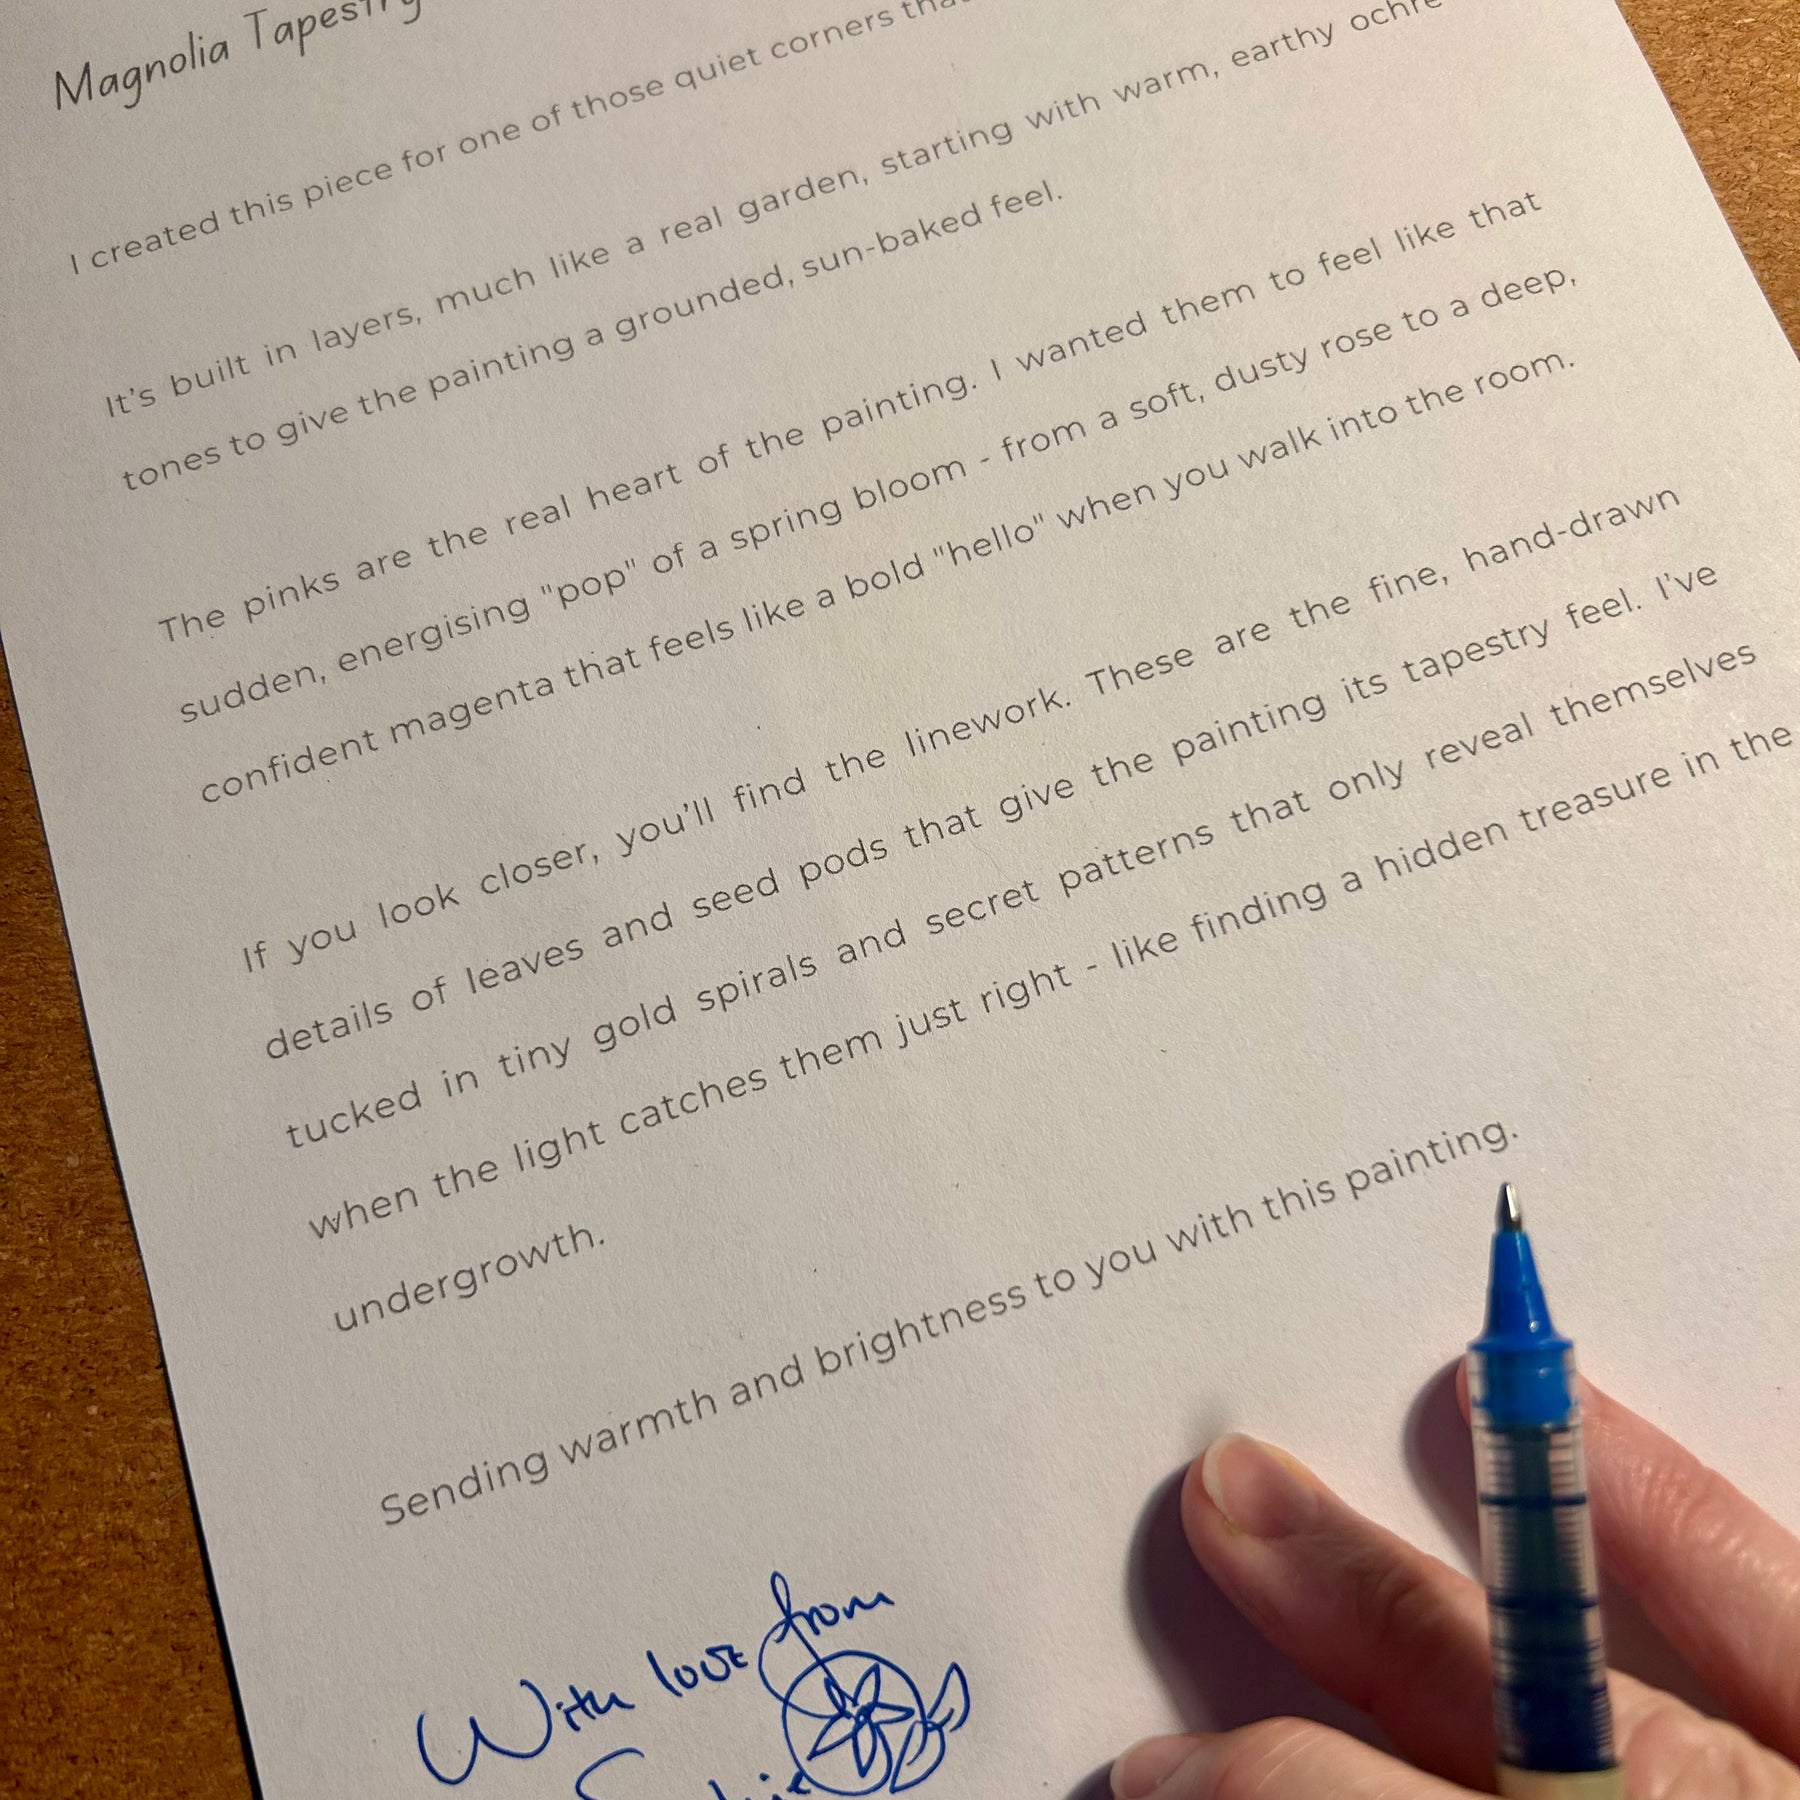 Magnolia Tapestry
I created this piece for one of those quiet corners
It's built in layers, much like a real garden, starting with warm, earthy ochre
tones to give the painting a grounded, sun-baked feel.
The pinks are the real heart of the painting. I wanted them to feel like that
sudden, energising "pop" of a spring bloom - from a soft, dusty rose to a deep,
confident magenta that feels like a bold "hello" when you walk into the room.
If you look closer, you'll find the linework. These are the fine, hand-drawn
details of leaves and seed pods that give the painting its tapestry feel. I've
tucked in tiny gold spirals and secret patterns that only reveal themselves
when the light catches them just right - like finding a hidden treasure in the
undergrowth.
Sending warmth and brightness to you with this painting.
With love from